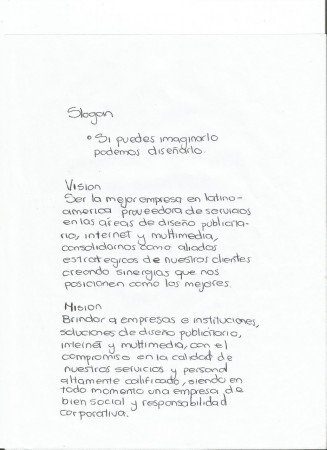 Slogan
• Si puedes imaginarlo
podemos diseñarlo.
Vision
Ser la mejor empresa en latino-
america proveedora de servicios
en las áreas de diseño publicita-
rio, internet y multimedia,
consolidarnos como aliados
estrategicos de nuestros clientes
creando sinergias que nos
posicionen como los mejores.
Mision
Brindar a empresas e instituciones,
soluciones de diseño publicitario,
internet y multimedia, con el
compromiso en la calidad de
nuestros servicios y personal
altamente calificado, siendo en
todo momento una empresa de
bien social y responsabilidad
corporativa.